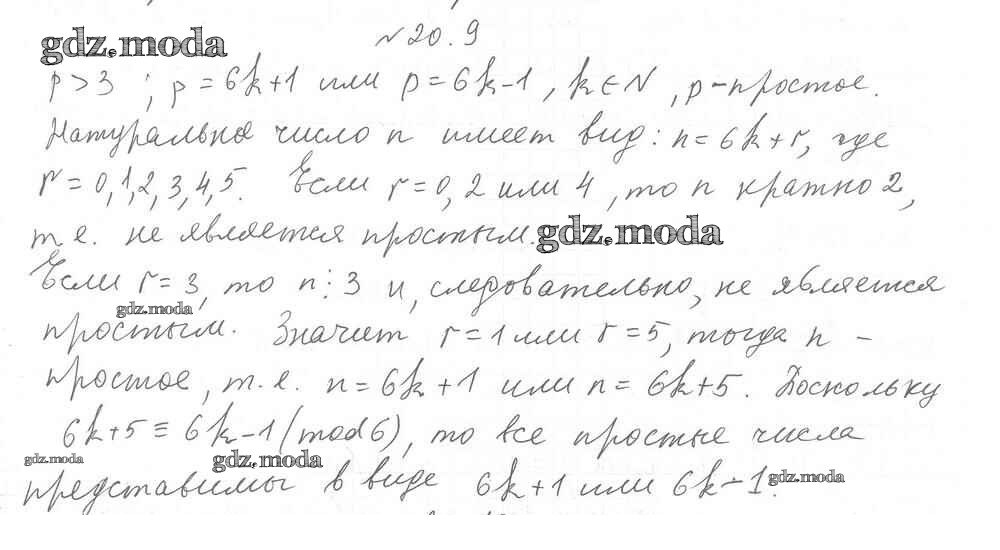 №20.9
gdz.moda
p > 3 ; p = 6k+1 или p = 6k-1, k ∈ N, p-простое.
Натуральное число n имеет вид: n = 6k + r, где
r = 0,1,2,3,4,5. Если r = 0, 2 или 4, то n кратно 2,
т.е. не является простым. gdz.moda
Если r = 3, то n ⋮ 3 и, следовательно, не является
gdz.moda
простым. Значит r = 1 или r = 5, тогда n -
простое, т.е. n = 6k + 1 или n = 6k+5. Поскольку
6k+5 ≡ 6k-1 (mod 6), то все простые числа
gdz.moda gdz.moda
представимы в виде 6k+1 или 6k-1. gdz.moda